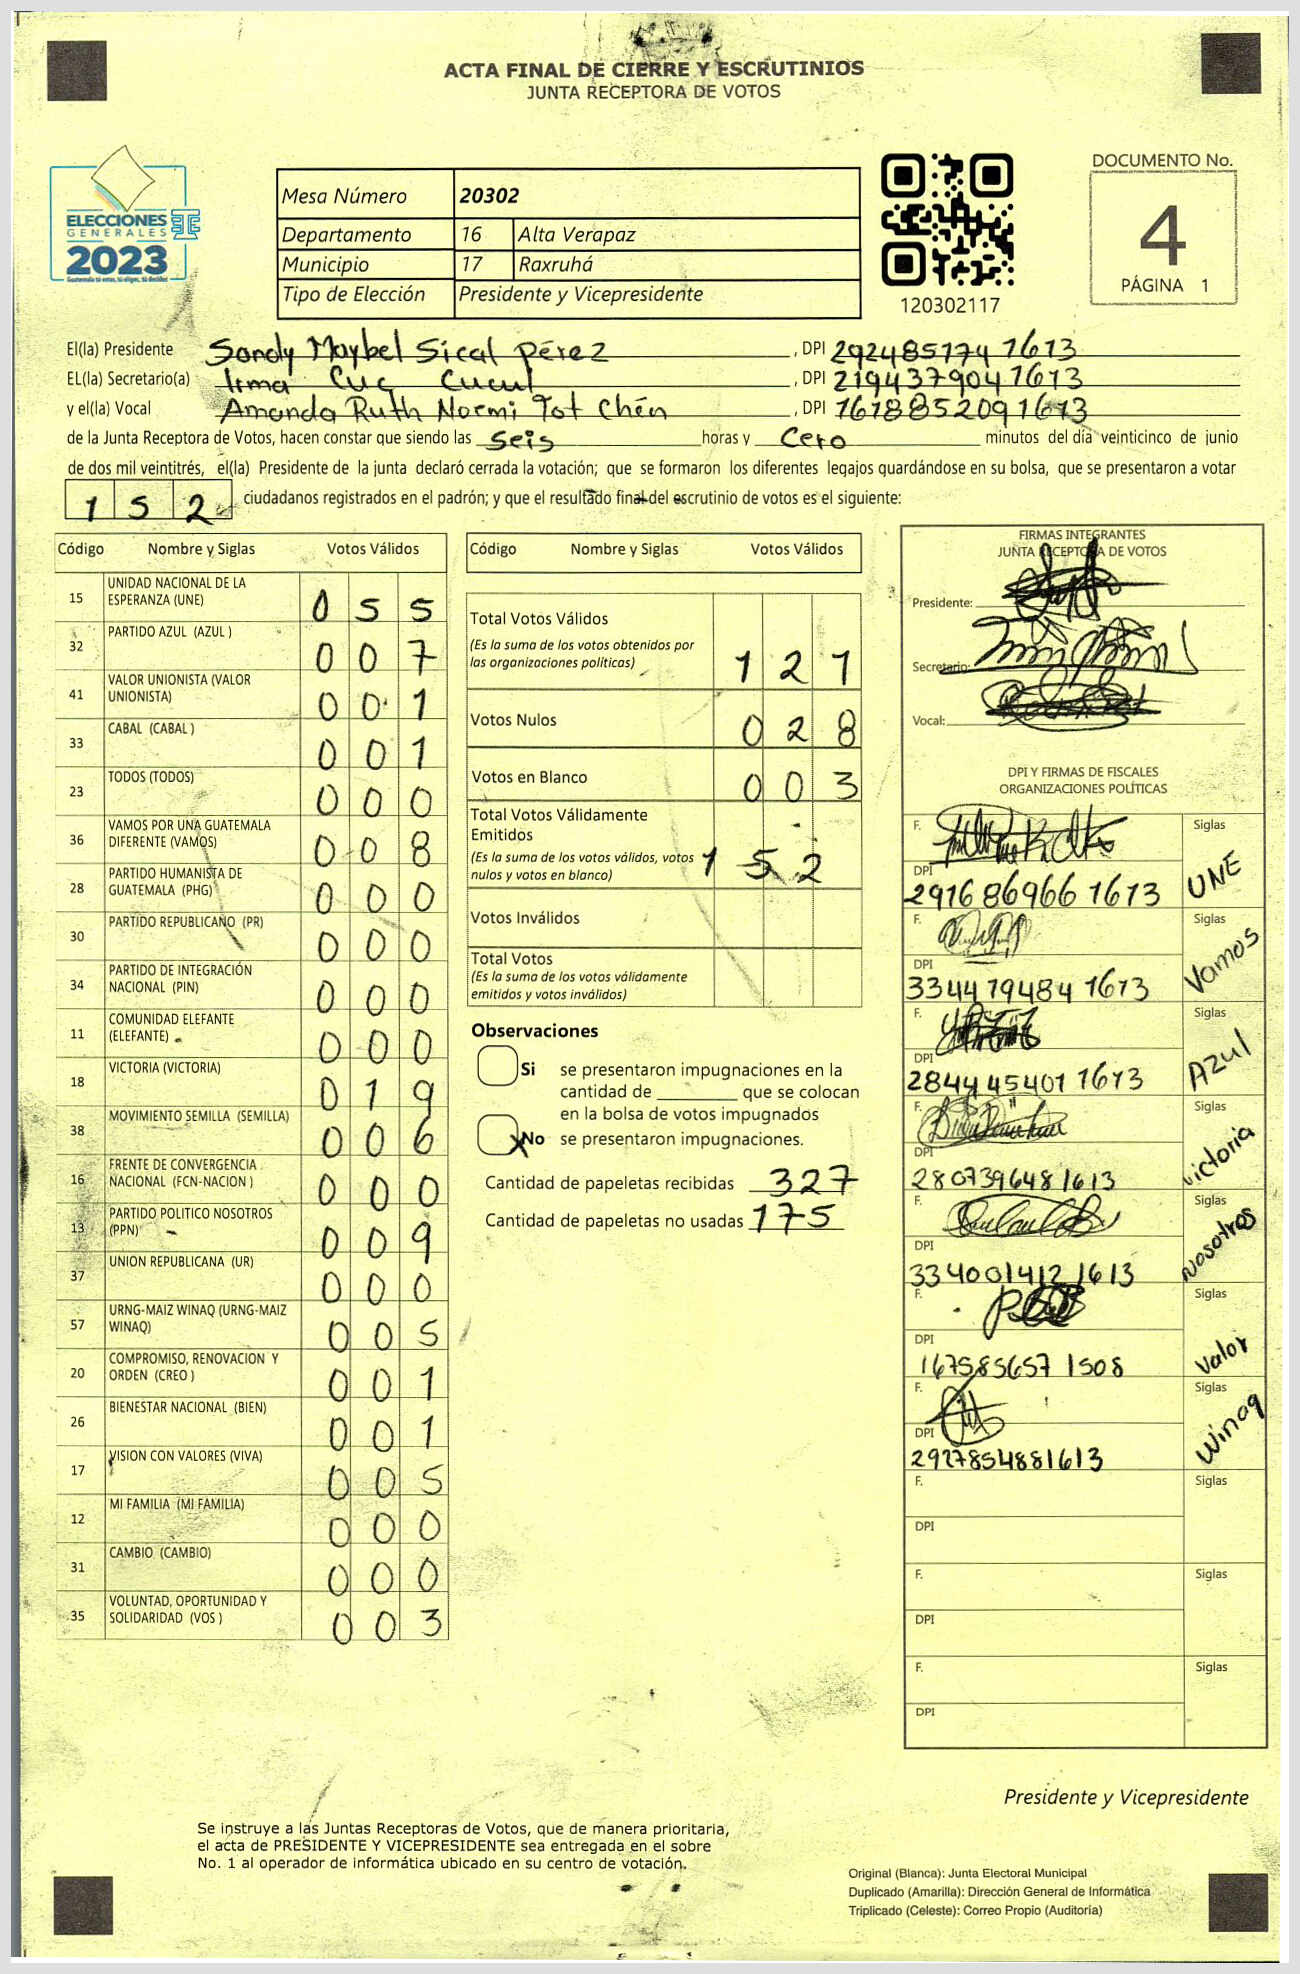 ACTA FINAL DE CIERRE Y ESCRUTINIOS
JUNTA RECEPTORA DE VOTOS
ELECCIONES
GENERALES
2023
Guatemala tú votas, tú eliges, tú decides
Mesa Número 20302
Departamento 16 Alta Verapaz
Municipio 17 Raxruhá
Tipo de Elección Presidente y Vicepresidente
120302117
DOCUMENTO No.
4
PÁGINA 1
El(la) Presidente Sandy Maybel Sical Pérez , DPI 292485174 1613
EL(la) Secretario(a) Irma Cuc Cucul , DPI 219437904 1613
y el(la) Vocal Amanda Ruth Noemi Tot Chén , DPI 161885209 1613
de la Junta Receptora de Votos, hacen constar que siendo las seis horas y cero minutos del día veinticinco de junio
de dos mil veintitrés, el(la) Presidente de la junta declaró cerrada la votación; que se formaron los diferentes legajos guardándose en su bolsa, que se presentaron a votar
152 ciudadanos registrados en el padrón; y que el resultado final del escrutinio de votos es el siguiente:
Código Nombre y Siglas Votos Válidos
15 UNIDAD NACIONAL DE LA ESPERANZA (UNE) 055
32 PARTIDO AZUL (AZUL ) 007
41 VALOR UNIONISTA (VALOR UNIONISTA) 001
33 CABAL (CABAL ) 001
23 TODOS (TODOS) 000
36 VAMOS POR UNA GUATEMALA DIFERENTE (VAMOS) 008
28 PARTIDO HUMANISTA DE GUATEMALA (PHG) 000
30 PARTIDO REPUBLICANO (PR) 000
34 PARTIDO DE INTEGRACIÓN NACIONAL (PIN) 000
11 COMUNIDAD ELEFANTE (ELEFANTE) 000
18 VICTORIA (VICTORIA) 019
38 MOVIMIENTO SEMILLA (SEMILLA) 006
16 FRENTE DE CONVERGENCIA NACIONAL (FCN-NACION ) 000
13 PARTIDO POLITICO NOSOTROS (PPN) 009
37 UNION REPUBLICANA (UR) 000
57 URNG-MAIZ WINAQ (URNG-MAIZ WINAQ) 005
20 COMPROMISO, RENOVACION Y ORDEN (CREO ) 001
26 BIENESTAR NACIONAL (BIEN) 001
17 VISION CON VALORES (VIVA) 005
12 MI FAMILIA (MI FAMILIA) 000
31 CAMBIO (CAMBIO) 000
35 VOLUNTAD, OPORTUNIDAD Y SOLIDARIDAD (VOS ) 003
Código Nombre y Siglas Votos Válidos
Total Votos Válidos
(Es la suma de los votos obtenidos por
las organizaciones políticas) 121
Votos Nulos 028
Votos en Blanco 003
Total Votos Válidamente
Emitidos
(Es la suma de los votos válidos, votos
nulos y votos en blanco) 152
Votos Inválidos
Total Votos
(Es la suma de los votos válidamente
emitidos y votos inválidos)
Observaciones
Si se presentaron impugnaciones en la
cantidad de ________ que se colocan
en la bolsa de votos impugnados
X No se presentaron impugnaciones.
Cantidad de papeletas recibidas 327
Cantidad de papeletas no usadas 175
FIRMAS INTEGRANTES
JUNTA RECEPTORA DE VOTOS
Presidente:
Secretario:
Vocal:
DPI Y FIRMAS DE FISCALES
ORGANIZACIONES POLÍTICAS
F. Siglas
DPI
291686966 1613 UNE
F. Siglas
DPI
334479484 1613 Vamos
F. Siglas
DPI
284445401 1613 Azul
F. Siglas
DPI
280739648 1613 victoria
F. Siglas
DPI
334001412 1613 Nosotros
F. Siglas
DPI
167585657 1508 Valor
F. Siglas
DPI
2927854881613 Winaq
F. Siglas
DPI
F. Siglas
DPI
F. Siglas
DPI
Presidente y Vicepresidente
Se instruye a las Juntas Receptoras de Votos, que de manera prioritaria,
el acta de PRESIDENTE Y VICEPRESIDENTE sea entregada en el sobre
No. 1 al operador de informática ubicado en su centro de votación.
Original (Blanca): Junta Electoral Municipal
Duplicado (Amarilla): Dirección General de Informática
Triplicado (Celeste): Correo Propio (Auditoría)